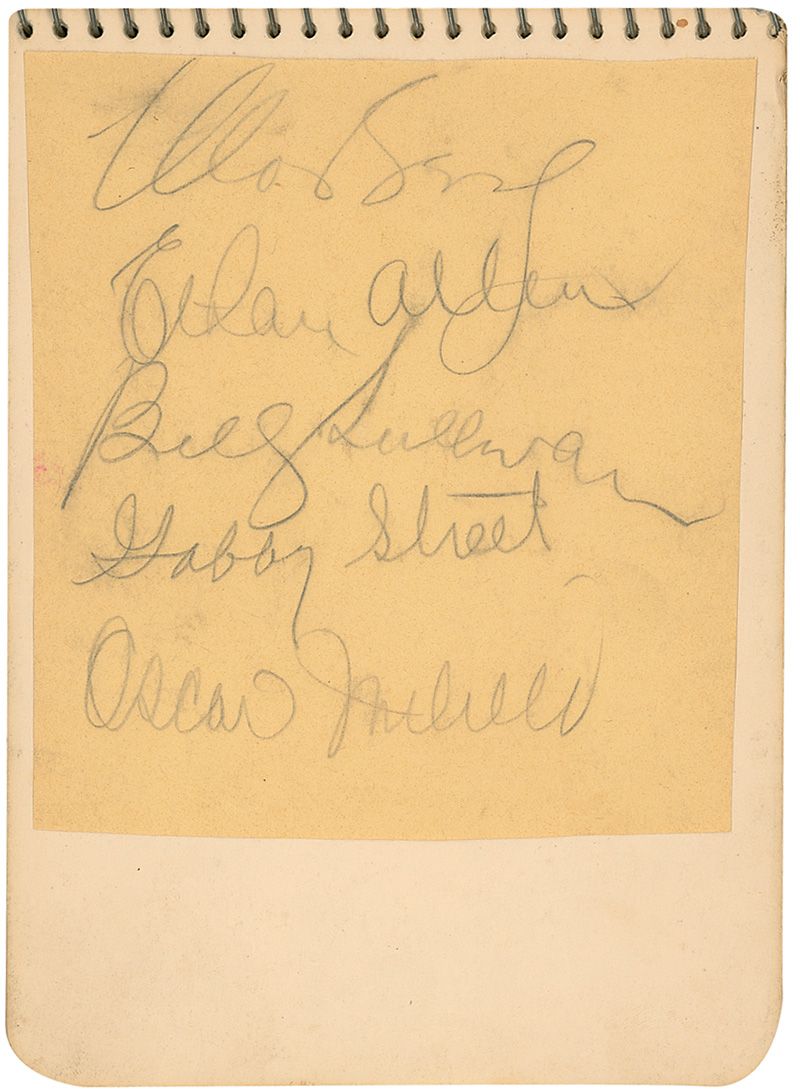 Moe Berg
Ethan Allen
Billy Sullivan
Gabby Street
Oscar Melillo